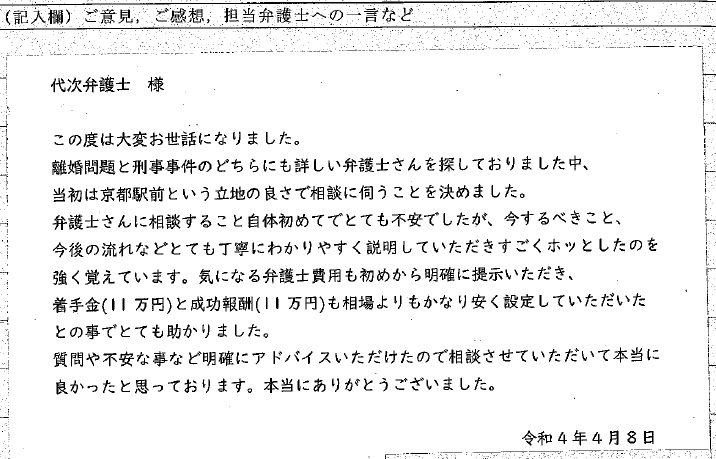 (記入欄)ご意見，ご感想，担当弁護士への一言など
代次弁護士　様
この度は大変お世話になりました。
離婚問題と刑事事件のどちらにも詳しい弁護士さんを探しておりました中、
当初は京都駅前という立地の良さで相談に伺うことを決めました。
弁護士さんに相談すること自体初めてでとても不安でしたが、今するべきこと、
今後の流れなどとても丁寧にわかりやすく説明していただきすごくホッとしたのを
強く覚えています。気になる弁護士費用も初めから明確に提示いただき、
着手金(11万円)と成功報酬(11万円)も相場よりもかなり安く設定していただいた
との事でとても助かりました。
質問や不安な事など明確にアドバイスいただけたので相談させていただいて本当に
良かったと思っております。本当にありがとうございました。
令和4年4月8日